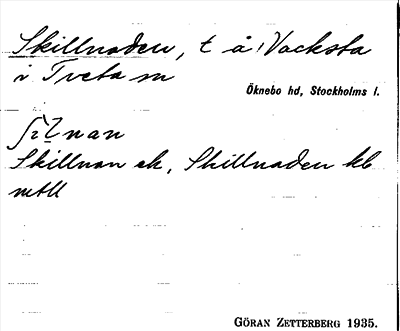 Skillnaden, t å Vacksta
i Tveta sn
Öknebo hd, Stockholms l.
Skillnan ek, Skillnaden kb
mtll
GÖRAN ZETTERBERG 1935.